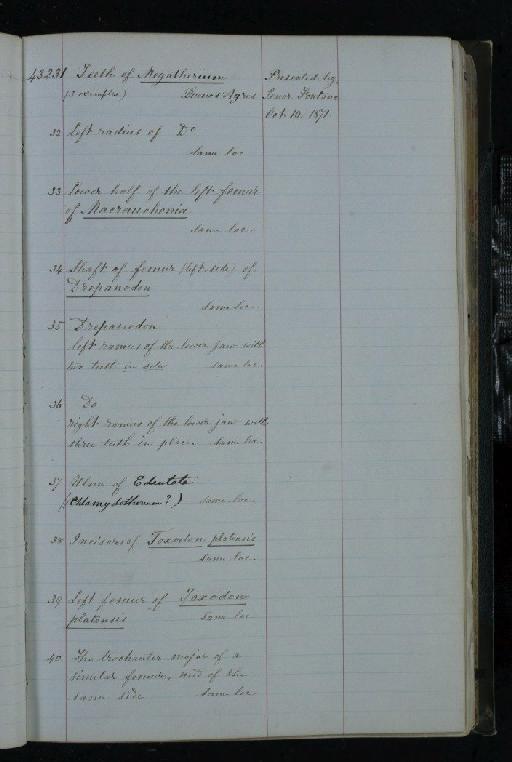 43231 Teeth of Megatherium Presented by
(3 examples) Buenos Ayres Senor
Oct 10. 1871
32 Left radius of Do
same loc
33 Lower half of the left femur
of Macrauchenia
same loc.
34 Shaft of femur (left side) of
Drepanodon
same loc.
35 Drepanodon
left ramus of the lower jaw with
two teeth in situ same loc.
36 Do
right ramus of the lower jaw with
three teeth in place same loc.
37 Ulna of Edentate
(Chlamydotherium?) same loc.
38 Incisors of Toxodon platensis
same loc.
39 Left femur of Toxodon
platensis same loc
40 The trochanter major of a
similar femur, and of the
same side same loc